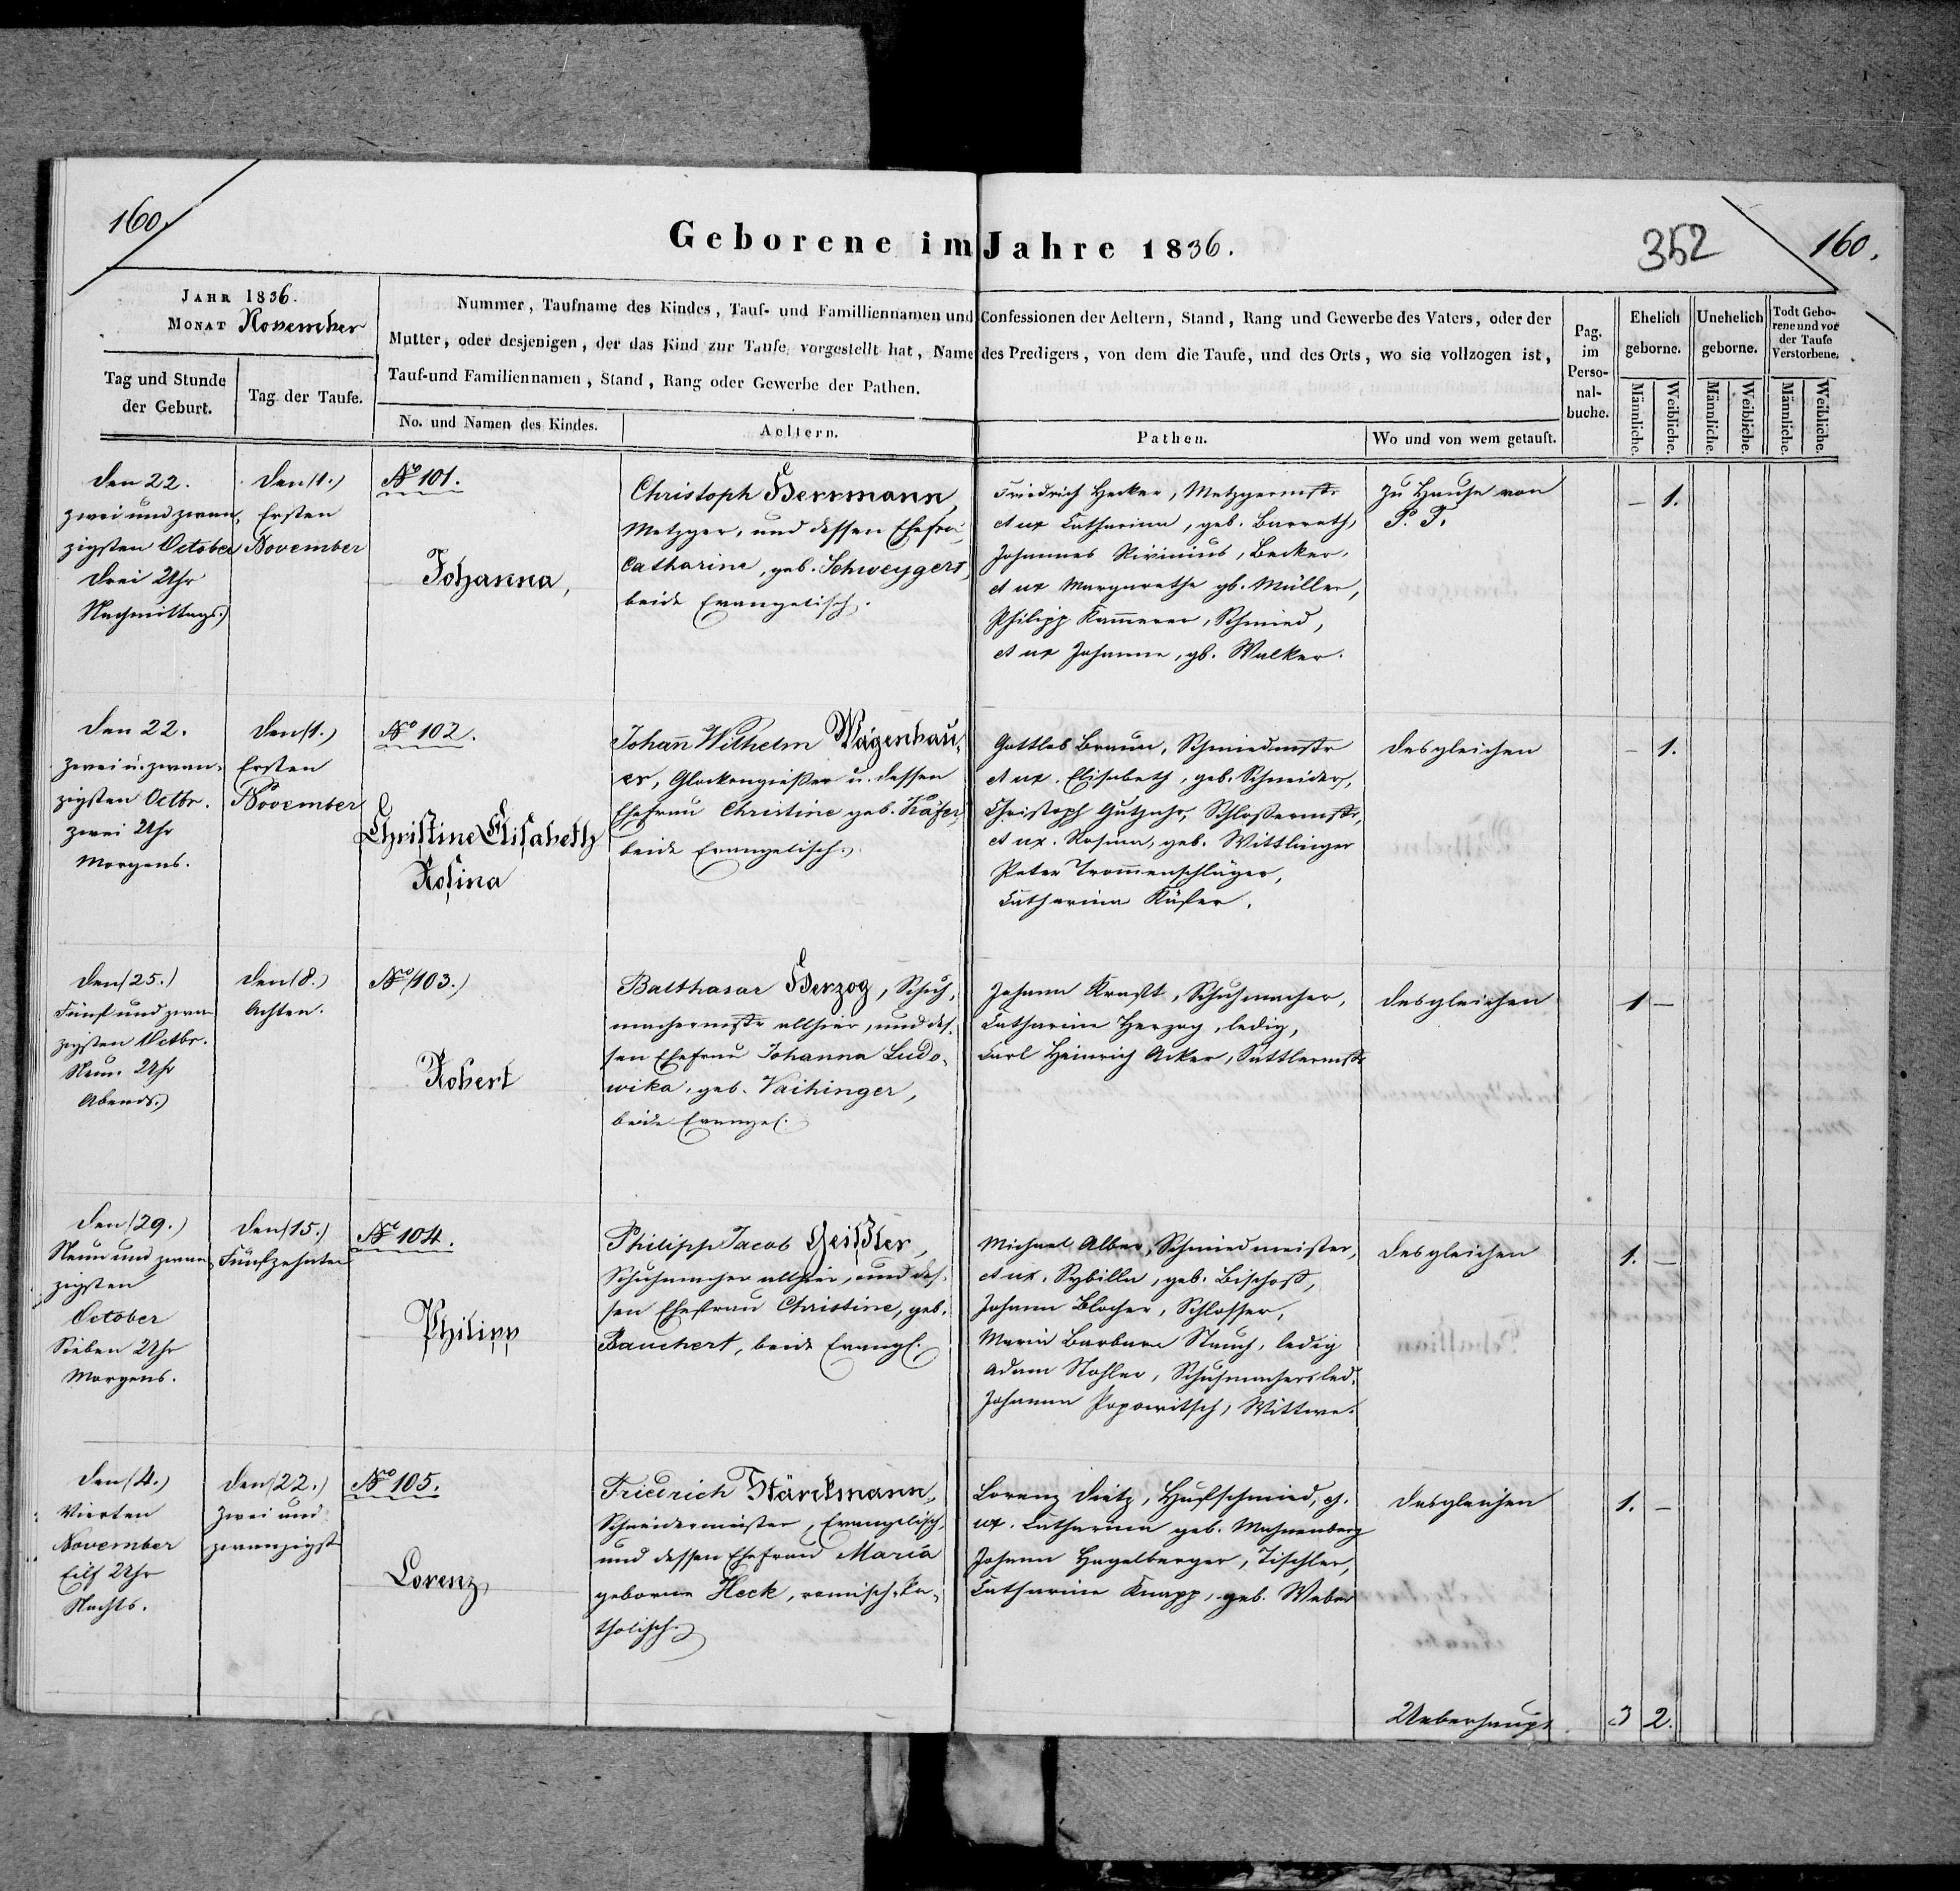 160.
Geborene im Jahre 1836.
352
160.
JAHR 1836.
MONAT November
Tag und Stunde
der Geburt.
Tag der Taufe.
Nummer, Taufname des Kindes, Tauf- und Familliennamen und Confessionen der Aeltern, Stand, Rang und Gewerbe des Vaters, oder der
Mutter, oder desjenigen, der das Kind zur Taufe vorgestellt hat, Name des Predigers, von dem die Taufe, und des Orts, wo sie vollzogen ist,
Tauf-und Familiennamen, Stand, Rang oder Gewerbe der Pathen.
No. und Namen des Kindes.
Aeltern.
Pathen.
Wo und von wem getauft.
Pag.
im
Perso-
nal-
buche.
Ehelich
geborne.
Unehelich
geborne.
Todt Gebo-
rene und vor
der Taufe
Verstorbene.
Männliche.
Weibliche.
Männliche.
Weibliche.
Männliche.
Weibliche.
den 22.
zwei und zwan
zigsten October
Drei Uhr
Nachmittags.)
den (1.)
Ersten
November
No 101.
Johanna,
Christoph Herrmann,
Metzger, und dessen Ehefrau
Catharine, geb. Schweygert,
beide Evangelisch.
Friedrich Hecker, Metzgermstr
et ux Catharina, geb. Barrath,
Johannes Rivinius, Becker,
et ux Margarethe gb. Müller,
Philipp Kammerer, Schmied,
et ux Johanne, gb. Walker.
Zu Hause von
P. F.
– 1.
den 22.
zwei u. zwan-
zigsten Octbr.
zwei Uhr
Morgens.
den (1.)
Ersten
November
No 102.
Christine Elisabeth
Rosina
Johann Wilhelm Wägenhau,
er, Glockengießer u. dessen
Ehefrau Christine geb. Käfer,
beide Evangelisch.
Gottlob Braun, Schmiedmstr
et ux. Elisabeth, geb. Schneider,
Christoph Gutjahr, Schloßermstr,
et ux. Rosina, geb. Wittlinger
Peter Trommenschläger,
Catharina Käfer.
desgleichen
– 1.
den (25.)
Fünf und zwan
zigsten Octbr.
Neun Uhr
Abends.)
den (8.)
Achten.
No (103.)
Robert
Balthasar Herzog, Schuh,
machermstr allhier, und des-
sen Ehefrau Johanna Ludo-
wika, geb. Vaihinger,
beide Evangel.
Johann Kraft, Schuhmacher,
Catharine Herzog, ledig,
Carl Heinrich Acker, Sattlermstr
desgleichen
1 –
den (29.)
Neun und zwan
zigsten
October
Sieben Uhr
Morgens.
den (15.)
Fünfzehnten
No 104.
Philipp
Philipp Jacob Geißler,
Schuhmacher allhier, und des-
sen Ehefrau Christine, geb.
Bauchert, beide Evangl.
Michael Alber, Schmiedmeister,
et ux. Sybilla, geb. Bischoff,
Johann Blocher, Schlosser,
Maria Barbara Stauch, ledig
Adam Stohler, Schuhmacher led.
Johanna Popowitsch, Wittwe.
desgleichen
1. –
den (4.)
Vierten
November
Eilf Uhr
Nachts.
den (22.)
Zwei und
zwanzigst
No 105.
Lorenz
Friedrich Stärckmann,
Schneidermeister, Evangelisch,
und dessen Ehefrau Maria
geborne Heck, römisch-ka-
tholisch.
Lorenz Dietz, Hufschmied, et.
ux. Catharina geb.
Johann Hagelberger, Tischler,
Catharine Knapp, geb. Weber
desgleichen
1. –
Ueberhaupt
3 2.